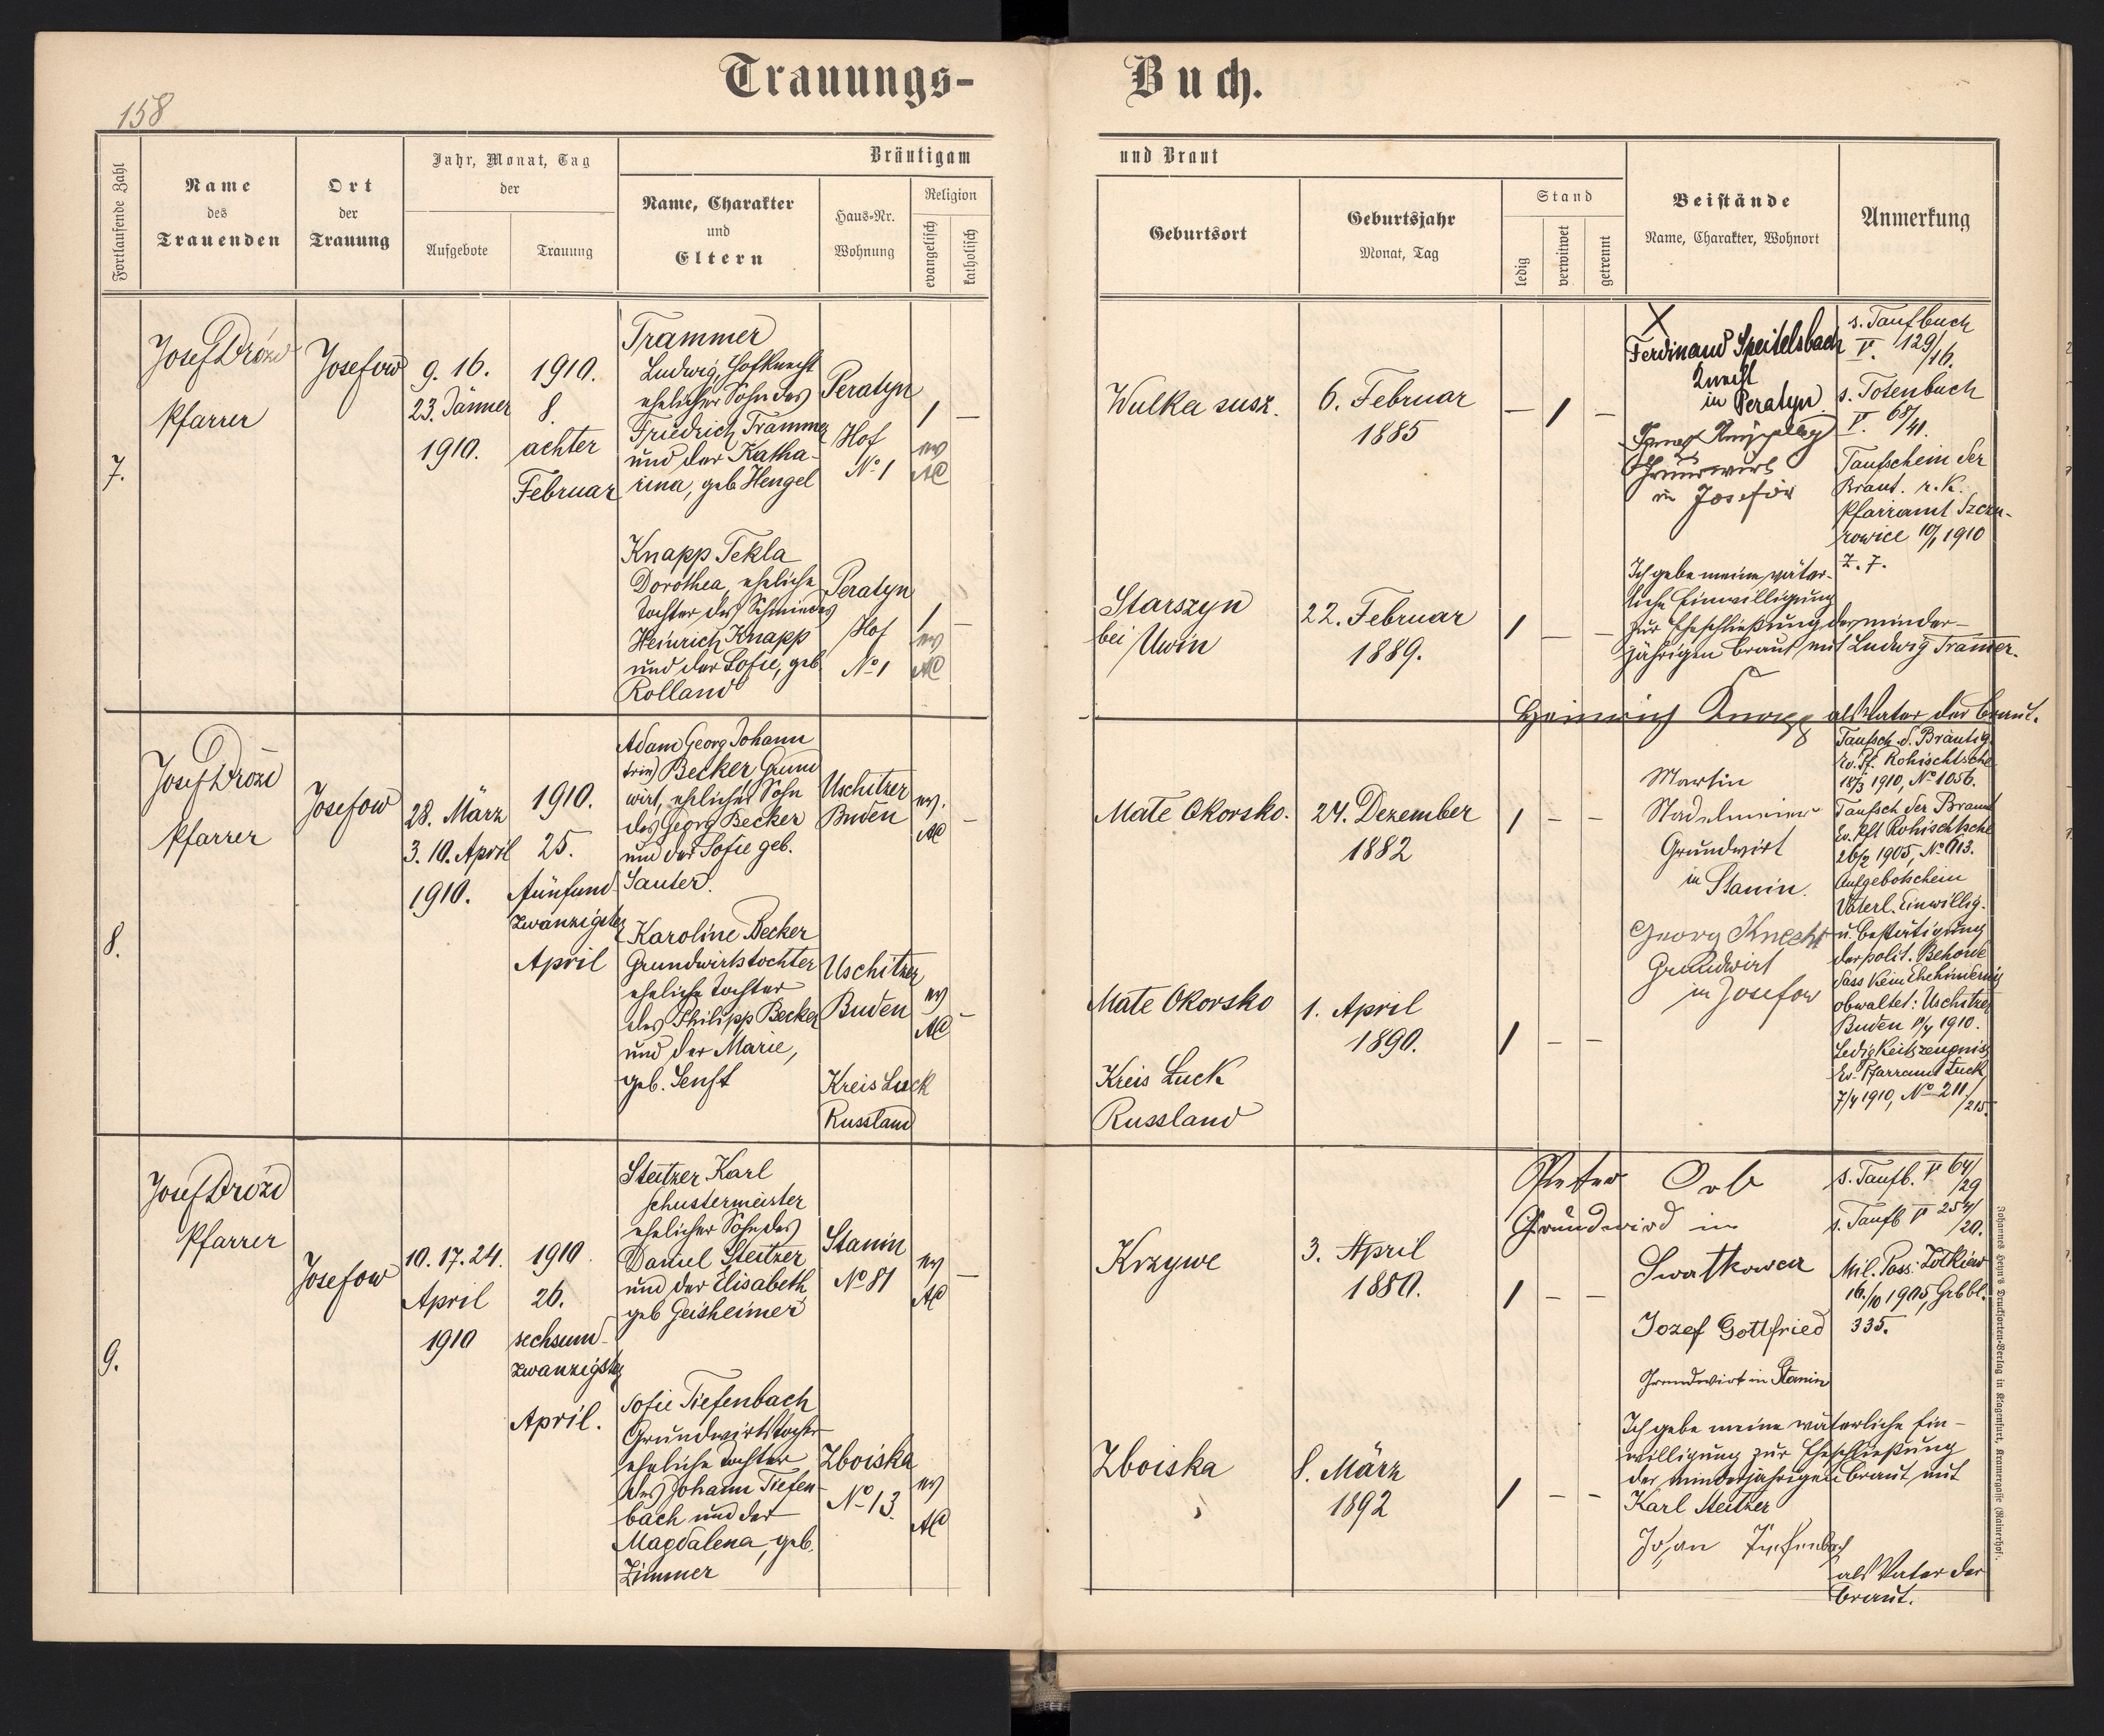 Trauungs-
Buch.
158
Fortlaufende Zahl
Name
des
Trauenden
Ort
der
Trauung
Jahr, Monat, Tag
der
Aufgebote
Trauung
Bräutigam
Name, Charakter
und
Eltern
Haus-Nr.
Wohnung
Religion
evangelisch
katholisch
und Braut
Geburtsort
Geburtsjahr
Monat, Tag
Stand
ledig
verwitwet
getrennt
Beistände
Name, Charakter, Wohnort
Anmerkung
7.
Josef Drozd
Pfarrer
Josefow
9. 16.
23. Jänner
1910.
1910.
8.
achter
Februar
Trammer
Ludwig, Hofknecht
ehelicher Sohn des
Friedrich Trammer
und der Katha-
rina, geb Hengel
Peratyn
Hof
No 1
ev
AC
Wulka susz.
6. Februar
1885
X
Ferdinand Speitelsbach
Knecht
in Peratyn
in Josefow
s. Taufbuch
V. 129/16.
s. Totenbuch
V. 68/41.
Taufschein der
Braut. r. K.
Pfarramt Szczu-
rowice 10/1 1910
Z. 7.
Knapp Tekla
Dorothea, eheliche
Tochter des Schmiedes
Heinrich Knapp
und der Sofie, geb
Rolland
Peratyn
Hof
No 1
ev
AC
Starszyn
bei Uwin
22. Februar
1889.
Ich gebe meine väter-
liche Einwilligung
zur Eheschließung der minder-
jährigen Braut mit Ludwig Tramer.
Heinrich Knapp als Vater der Braut.
8.
Josef Drozd
Pfarrer
Josefow
28. März
3. 10. April
1910.
1910.
25.
fünfund
zwanzigster
April
Adam Georg Johann
Becker Grund
wirt, ehelicher Sohn
des Georg Becker
und der Sofie geb.
Sauter.
Uschitzer
Buden
ev.
AC
Mate Okorsko.
24. Dezember
1882
Martin
Stadelmeier
Grundwirt
in Stanin.
Georg Knecht
Grundwirt
in Josefow
Taufsch. d. Bräutig.
Ev. Pf. Rohischtsche
18/3 1910, No 1056.
Taufsch der Braut
Ev. Pfl Rohischtsche
26/2 1905, No 913.
Aufgebotschein
Väterl. Einwillig.
u. Bestätigung
der polit. Behörde
dass kein Ehehindernis
obwaltet: Uschitzer
Buden 1910.
Ledigkeitszeugniss
Ev. Pfarramt Luck
7/4 1910, No 211/215.
Karoline Becker
Grundwirtstochter
eheliche Tochter
des Philipp Becker
und der Marie,
geb. Senft
Uschitzer
Buden
Kreis Luck
Russland
ev
AC
Mate Okorsko
Kreis Luck
Russland
1. April
1890.
9.
Josef Drozd
Pfarrer
Josefow
10. 17. 24.
April
1910
1910
26.
sechsund-
zwanzigster
April.
Steitzer Karl
Schustermeister
ehelicher Sohn des
Daniel Steitzer
und der Elisabeth
geb Geisheimer
Stanin
No 81
ev
AC
Krzywe
3. April
1880.
Peter Orb
Grundwird in
Swatkowca
Jozef Gottfried
Grundwirt in Stanin
s. Taufb. V 64/29
s. Taufb V 254/20.
Mil. Pass: Zolkiew
16./10 1905, Grbbl.
335.
Sofie Tiefenbach
Grundwirtstochter
eheliche Tochter
des Johann Tiefen-
bach und der
Magdalena, geb.
Zimmer
Zboiska
No 13.
ev
AC
Zboiska
8. März
1892
Ich gebe meine väterliche Ein-
willigung zur Eheschließung
der minderjährigen Braut mit
Karl Steitzer
Johan Tiefenbach
als Vater der
Braut.
Johannes Heyn's Drucksorten-Verlag in Klagenfurt, Kramergasse (Rainerhof).